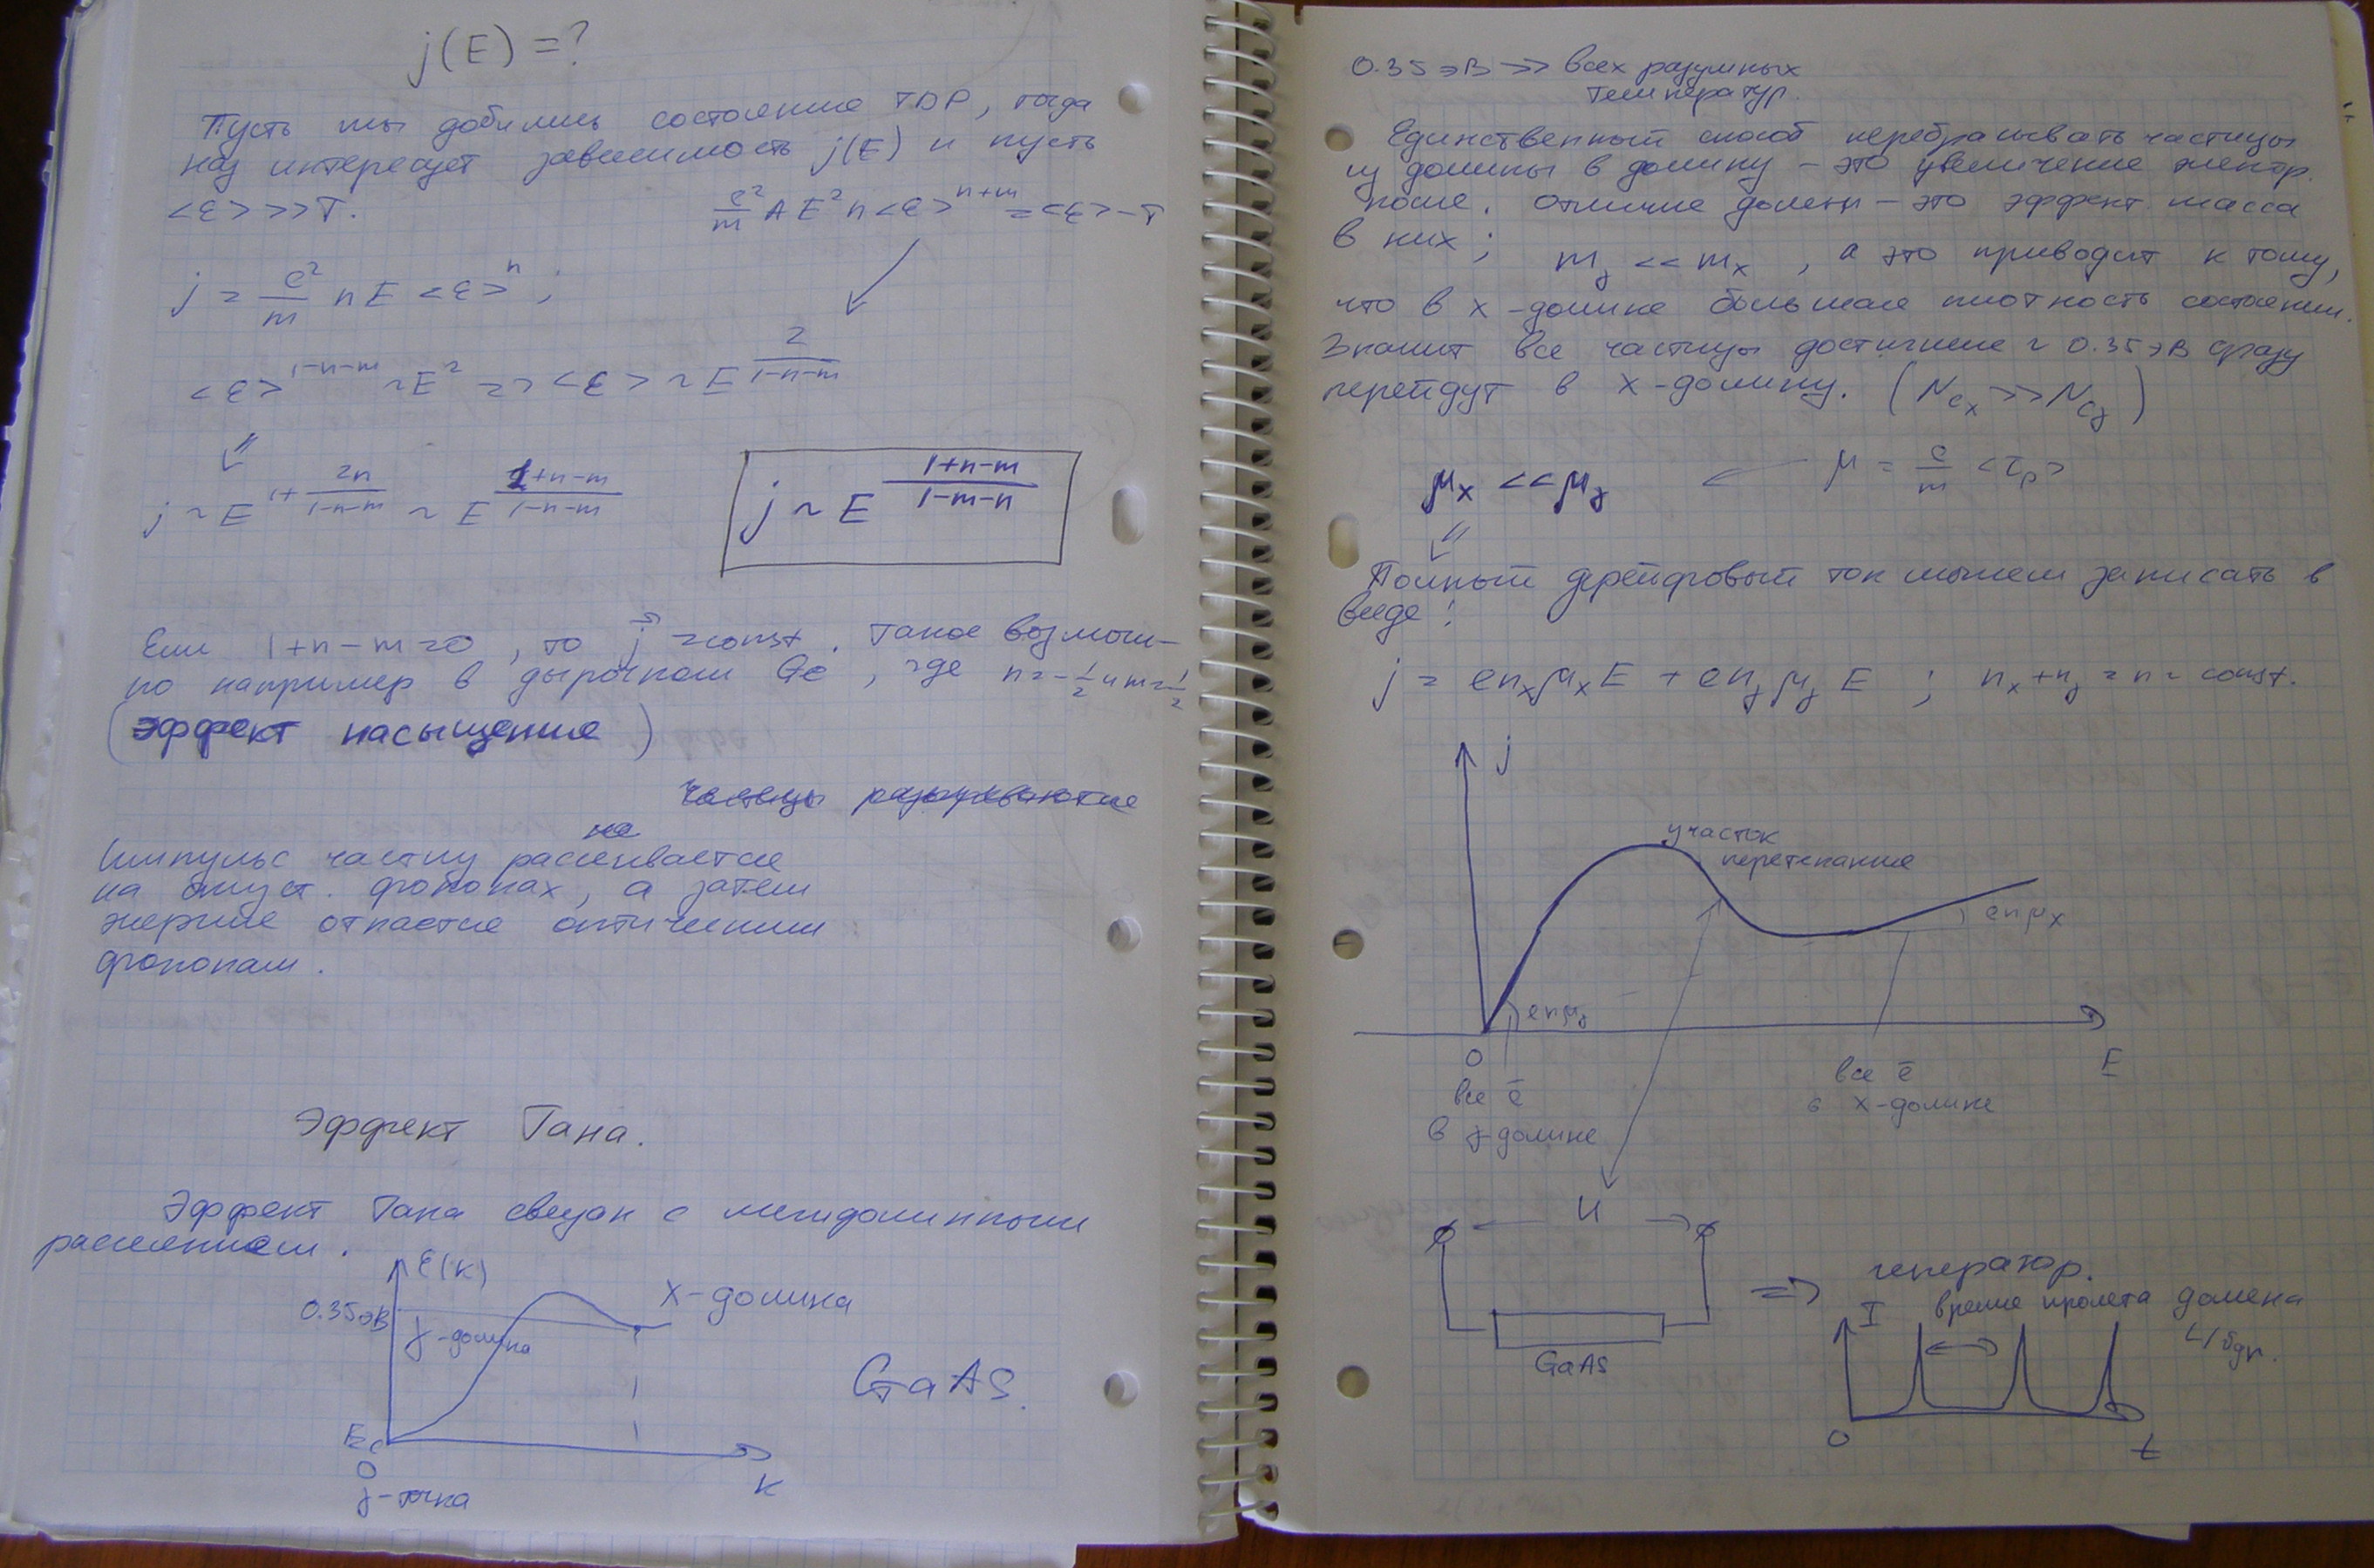 j(E) = ?
Пусть мы добились состояние TDP, тогда
нас интересует зависимость j(E) и пусть
<ε> >> T.
e²/m A E² n <ε>^(n+m) = <ε> - T
j = e²/m n E <ε>^n ;
<ε>^(1-n-m) ~ E² => <ε> ~ E^(2/(1-n-m))
j ~ E^(1+ 2n/(1-n-m)) ~ E^((1+n-m)/(1-n-m))
j ~ E^((1+n-m)/(1-m-n))
Если 1+n-m=0, то j = const. Такое возмож-
но например в дырочном Ge, где n = -1/2 и m = 1/2
(эффект насыщения)
Частицы разогреваются
не
Импульс частиц рассеивается
на акуст. фононах, а затем
энергия отдается оптическим
фононам.
Эффект Гана.
Эффект Гана связан с междолинным
рассеянием.
ε(k)
0.35 эВ
X-долина
γ-долина
GaAs.
Ec
0
k
γ-точка
0.35 эВ >> всех разумных
температур.
Единственный способ перебрасывать частицы
из долины в долину – это увеличение электр.
поля. Отличие долин – это эффект. масса
в них; m_γ << m_x, а это приводит к тому,
что в X-долине большая плотность состояний.
Значит все частицы достигшие ~ 0.35 эВ сразу
перейдут в X-долину. (N_cx >> N_cγ)
μ_x << μ_γ
μ = e/m <τ_p>
Полный дрейфовый ток можем записать в
виде:
j = e n_x μ_x E + e n_γ μ_γ E ; n_x + n_γ = n = const.
j
участок
перетекания
enμ_x
enμ_γ
0
E
все ē
в γ-долине
все ē
в X-долине
U
GaAs
=> генератор.
I
время пролета домена
L/υ_др.
0
t